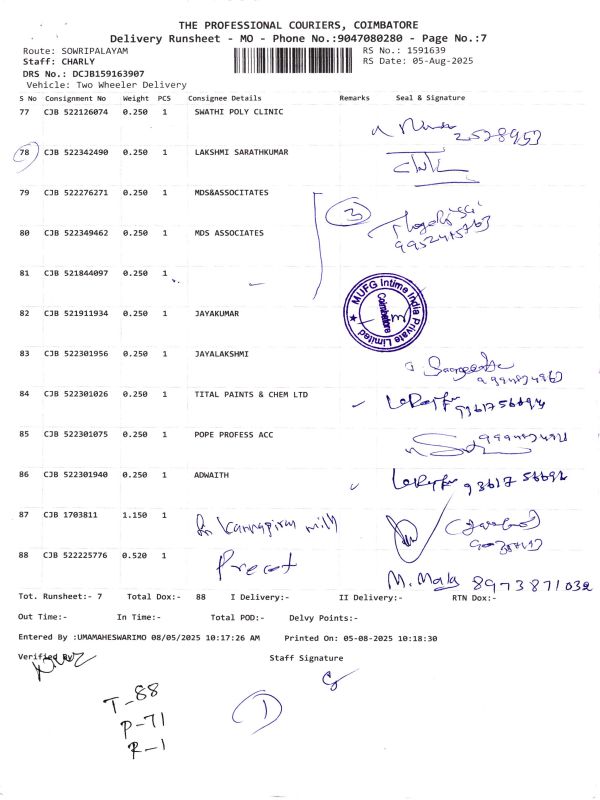 THE PROFESSIONAL COURIERS, COIMBATORE
Delivery Runsheet - MO - Phone No.:9047080280 - Page No.:7
Route: SOWRIPALAYAM RS No.: 1591639
Staff: CHARLY RS Date: 05-Aug-2025
DRS No.: DCJB159163907
Vehicle: Two Wheeler Delivery
S No Consignment No Weight PCS Consignee Details Remarks Seal & Signature
77 CJB 522126074 0.250 1 SWATHI POLY CLINIC
2528953
78 CJB 522342490 0.250 1 LAKSHMI SARATHKUMAR
79 CJB 522276271 0.250 1 MDS&ASSOCITATES
3
80 CJB 522349462 0.250 1 MDS ASSOCIATES
81 CJB 521844097 0.250 1
MUFG Intime India Private Limited
Coimbatore
82 CJB 521911934 0.250 1 JAYAKUMAR
83 CJB 522301956 0.250 1 JAYALAKSHMI
84 CJB 522301026 0.250 1 TITAL PAINTS & CHEM LTD
85 CJB 522301075 0.250 1 POPE PROFESS ACC
86 CJB 522301940 0.250 1 ADWAITH
87 CJB 1703811 1.150 1
88 CJB 522225776 0.520 1 Precot
M. Mala 8973871032
Tot. Runsheet:- 7 Total Dox:- 88 I Delivery:- II Delivery:- RTN Dox:-
Out Time:- In Time:- Total POD:- Delvy Points:-
Entered By :UMAMAHESWARIMO 08/05/2025 10:17:26 AM Printed On: 05-08-2025 10:18:30
Verified By Staff Signature
T-88
P-71
R-1
1